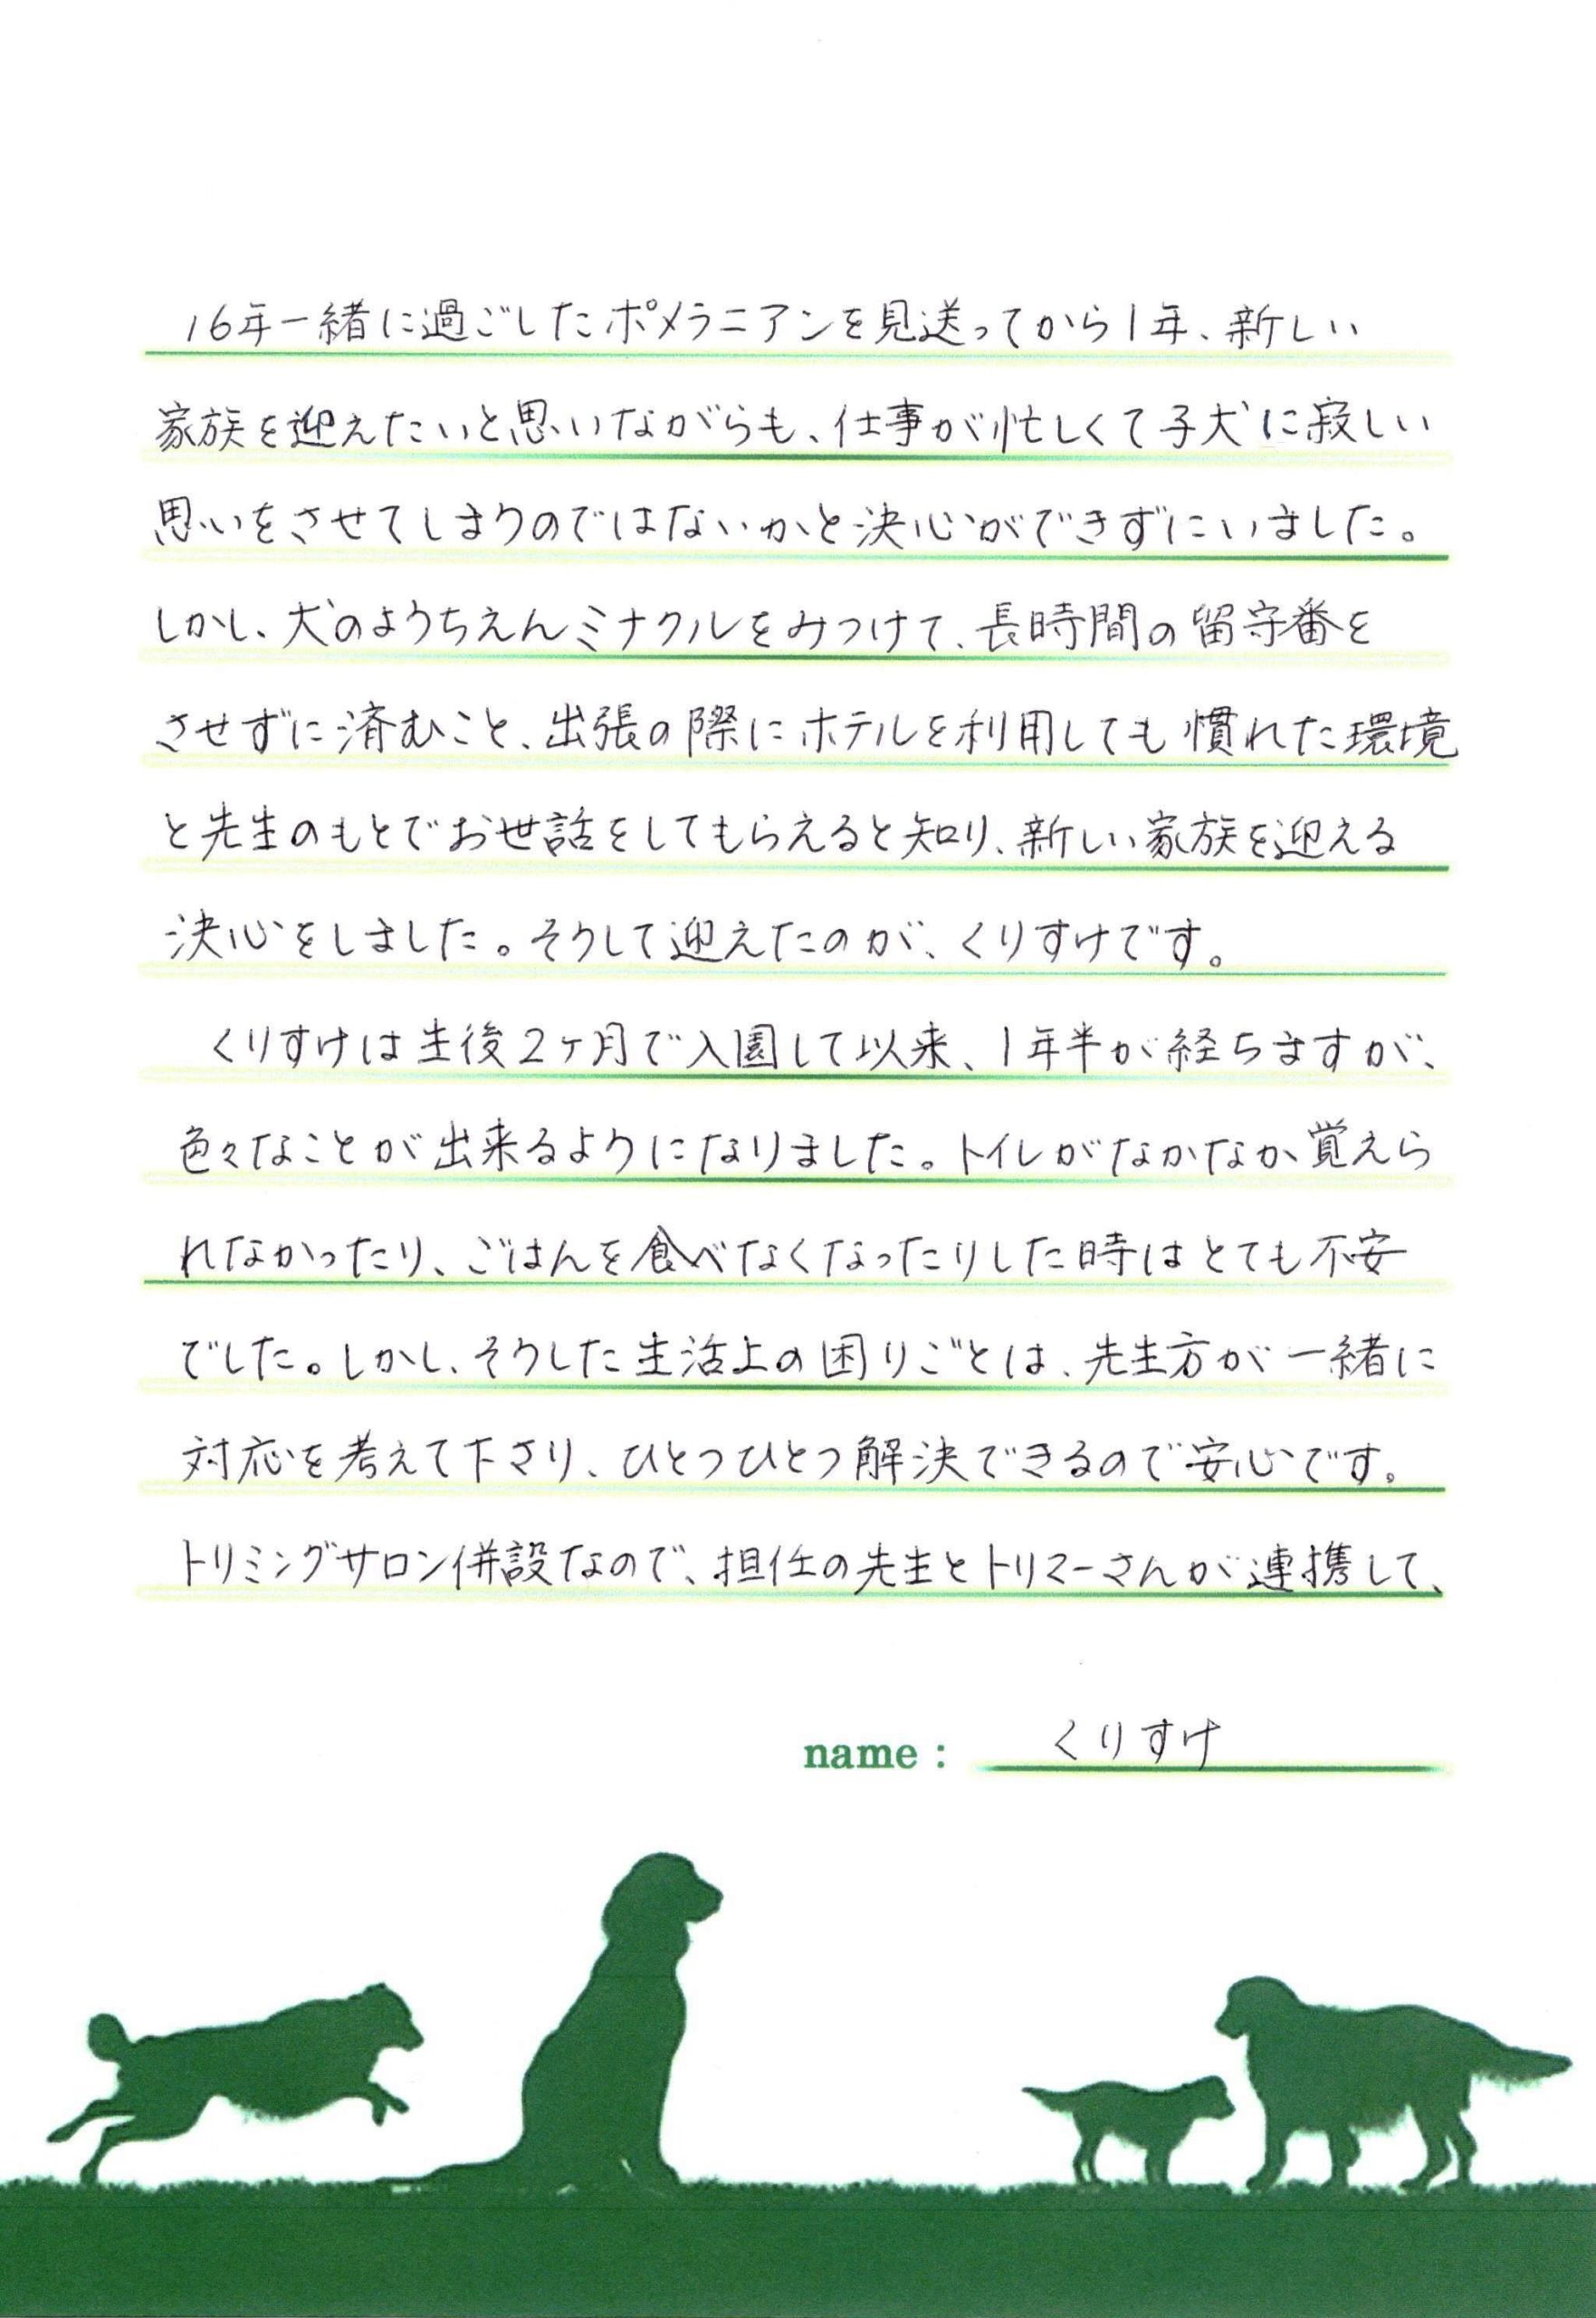 16年一緒に過ごしたポメラニアンを見送ってから1年、新しい
家族を迎えたいと思いながらも、仕事が忙しくて子犬に寂しい
思いをさせてしまうのではないかと決心ができずにいました。
しかし、犬のようちえんミナクルをみつけて、長時間の留守番を
させずに済むこと、出張の際にホテルを利用しても慣れた環境
と先生のもとでお世話をしてもらえると知り、新しい家族を迎える
決心をしました。そうして迎えたのが、くりすけです。
くりすけは生後2ヶ月で入園して以来、1年半が経ちますが、
色々なことが出来るようになりました。トイレがなかなか覚えら
れなかったり、ごはんを食べなくなったりした時はとても不安
でした。しかし、そうした生活上の困りごとは、先生方が一緒に
対応を考えて下さり、ひとつひとつ解決できるので安心です。
トリミングサロン併設なので、担任の先生とトリマーさんが連携して、
name : くりすけ